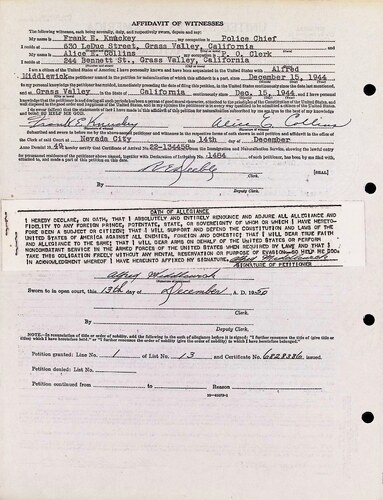 AFFIDAVIT OF WITNESSES
The following witnesses, each being severally, duly, and respectively sworn, depose and say:
My name is Frank E. Knuckey, my occupation is Police Chief
I reside at 630 LeDuc Street, Grass Valley, California
My name is Alice E. Collins, my occupation is P. O. Clerk
I reside at 244 Bennett St., Grass Valley, California
I am a citizen of the United States of America; I have personally known and have been acquainted in the United States with Alfred
Middlewick, the petitioner named in the petition for naturalization of which this affidavit is a part, since December 15, 1944
to my personal knowledge the petitioner has resided, immediately preceding the date of filing this petition, in the United States continuously since the date last mentioned,
and at Grass Valley, in the State of California continuously since Dec. 15, 1944 and I have personal
knowledge that the petitioner is and during all such periods has been a person of good moral character, attached to the principles of the Constitution of the United States, and
well disposed to the good order and happiness of the United States, and in my opinion the petitioner is in every way qualified to be admitted a citizen of the United States.
I do swear (affirm) that the statements of fact I have made in this affidavit of this petition for naturalization subscribed by me are true to the best of my knowledge and
belief: SO HELP ME GOD.
Frank E. Knuckey Alice E. Collins
Subscribed and sworn to before me by the above-named petitioner and witnesses in the respective forms of oath shown in said petition and affidavit in the office of
the Clerk of said Court at Nevada City this 14th day of December
Anno Domini 19 22-134458 from the Immigration and Naturalization Service, showing the lawful entry
for permanent residence of the petitioner above named, together with Declaration of Intention No. 1484 of such petitioner, has been by me filed with,
attached to, and made a part of this petition on this date.
Clerk. [SEAL]
By
Deputy Clerk.
OATH OF ALLEGIANCE
I HEREBY DECLARE, ON OATH, THAT I ABSOLUTELY AND ENTIRELY RENOUNCE AND ABJURE ALL ALLEGIANCE AND
FIDELITY TO ANY FOREIGN PRINCE, POTENTATE, STATE, OR SOVEREIGNTY OF WHOM OR WHICH I HAVE HERETO-
FORE BEEN A SUBJECT OR CITIZEN; THAT I WILL SUPPORT AND DEFEND THE CONSTITUTION AND LAWS OF THE
UNITED STATES OF AMERICA AGAINST ALL ENEMIES, FOREIGN AND DOMESTIC; THAT I WILL BEAR TRUE FAITH
AND ALLEGIANCE TO THE SAME; THAT I WILL BEAR ARMS ON BEHALF OF THE UNITED STATES OR PERFORM
NONCOMBATANT SERVICE IN THE ARMED FORCES OF THE UNITED STATES WHEN REQUIRED BY LAW AND THAT I
TAKE THIS OBLIGATION FREELY WITHOUT ANY MENTAL RESERVATION OR PURPOSE OF EVASION: SO HELP ME GOD.
IN ACKNOWLEDGMENT WHEREOF I HAVE HEREUNTO AFFIXED MY SIGNATURE. Alfred Middlewick
SIGNATURE OF PETITIONER
Alfred Middlewick
Sworn to in open court, this 13th day of December, A. D. 1950
Clerk.
By
Deputy Clerk.
NOTE.—In renunciation of title of order of nobility, add the following to the oath of allegiance before it is signed: "I further renounce the title of (give title or
titles) which I have heretofore held," or "I further renounce the order of nobility (give the order of nobility) to which I have heretofore belonged."
Petition granted: Line No. 1 of List No. 13 and Certificate No. 6828336 issued.
Petition denied: List No.
Petition continued from to Reason